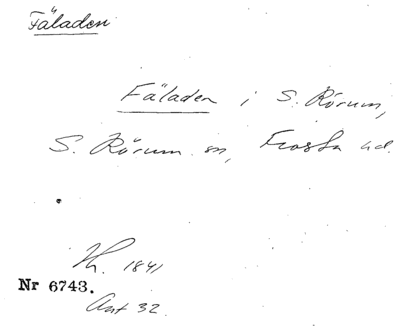 Fäladen
Fäladen i S. Rörum,
S. Rörum sn, Frosta hd.
H. 1841
Nr 6743.
Ant 32.